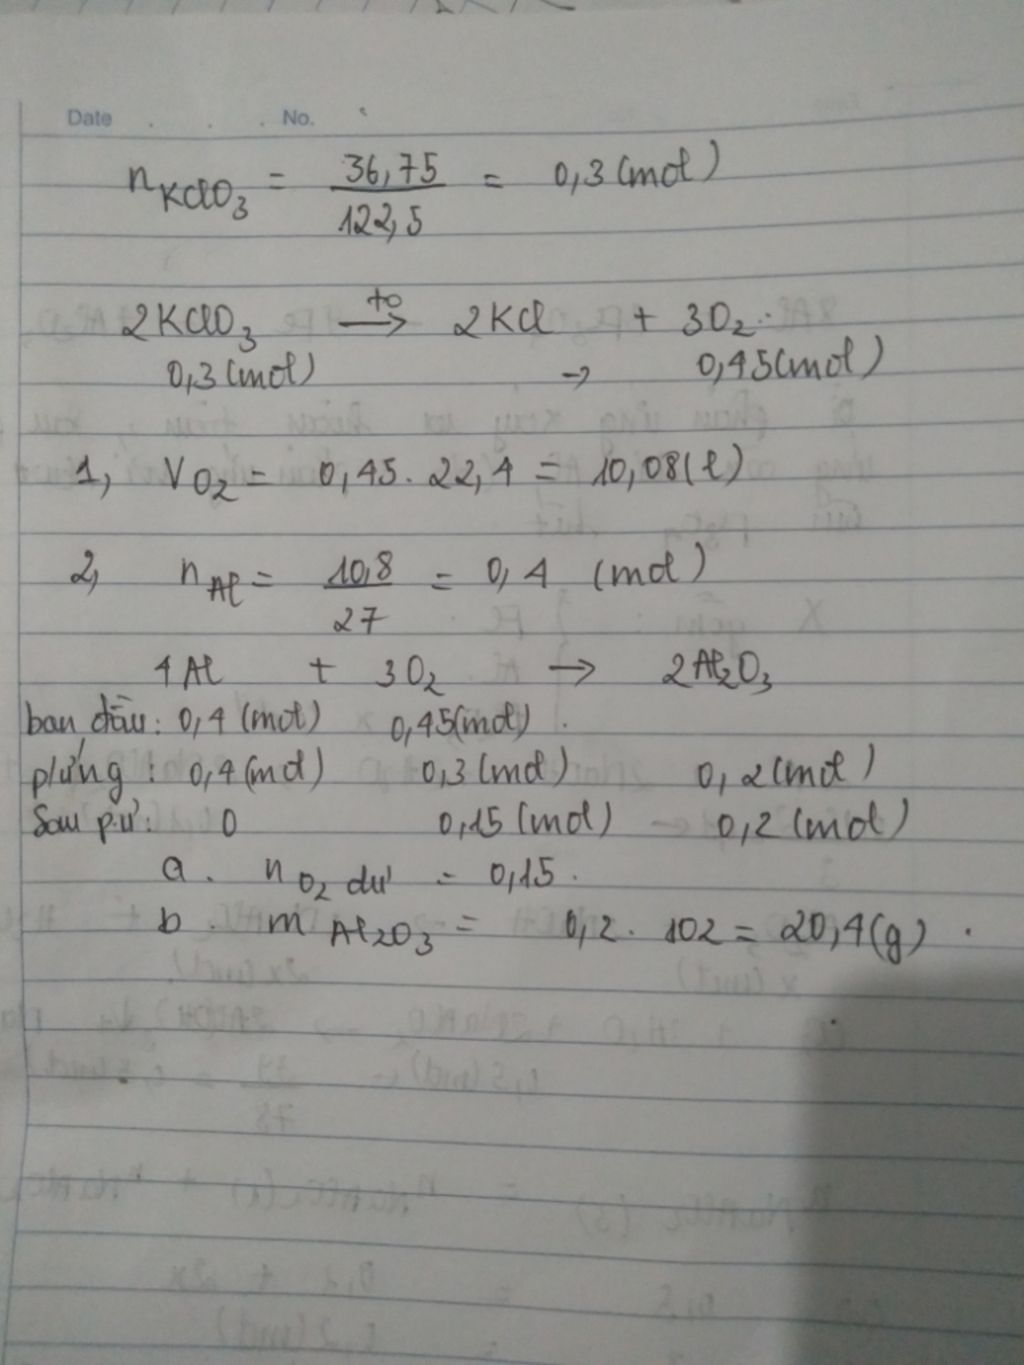 Date . . . No.
nKClO3 = 36,75 / 122,5 = 0,3 (mol)
2KClO3 →(to) 2KCl + 3O2
0,3 (mol) → 0,45 (mol)
1, VO2 = 0,45 . 22,4 = 10,08 (l)
2, nAl = 10,8 / 27 = 0,4 (mol)
4Al + 3O2 → 2Al2O3
ban đầu: 0,4 (mol) 0,45 (mol)
pứng : 0,4 (mol) 0,3 (mol) 0,2 (mol)
Sau p.ứ: 0 0,15 (mol) 0,2 (mol)
a. nO2 dư = 0,15.
b. mAl2O3 = 0,2 . 102 = 20,4 (g).